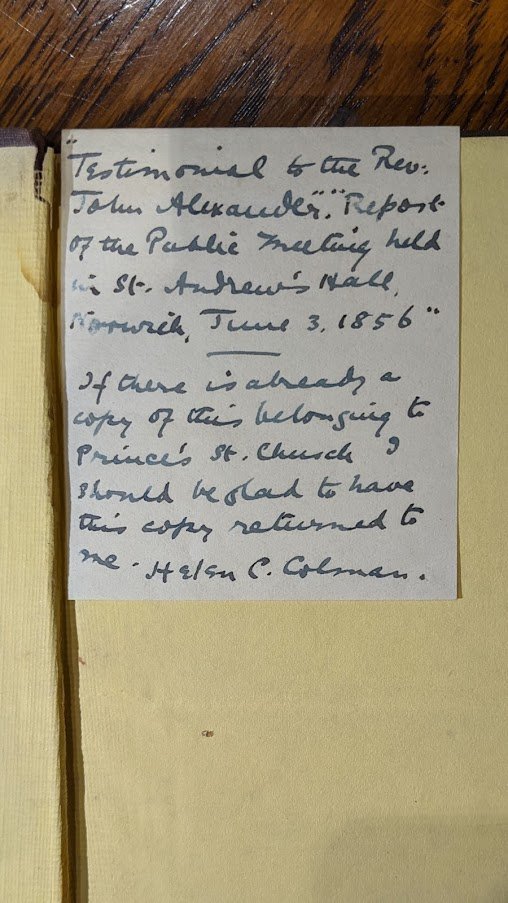 "Testimonial to the Rev.
John Alexander". "Report
of the Public Meeting held
in St. Andrew's Hall,
Norwich, June 3, 1856"
If there is already a
copy of this belonging to
Prince's St. Church I
should be glad to have
this copy returned to
me. Helen C. Colman.